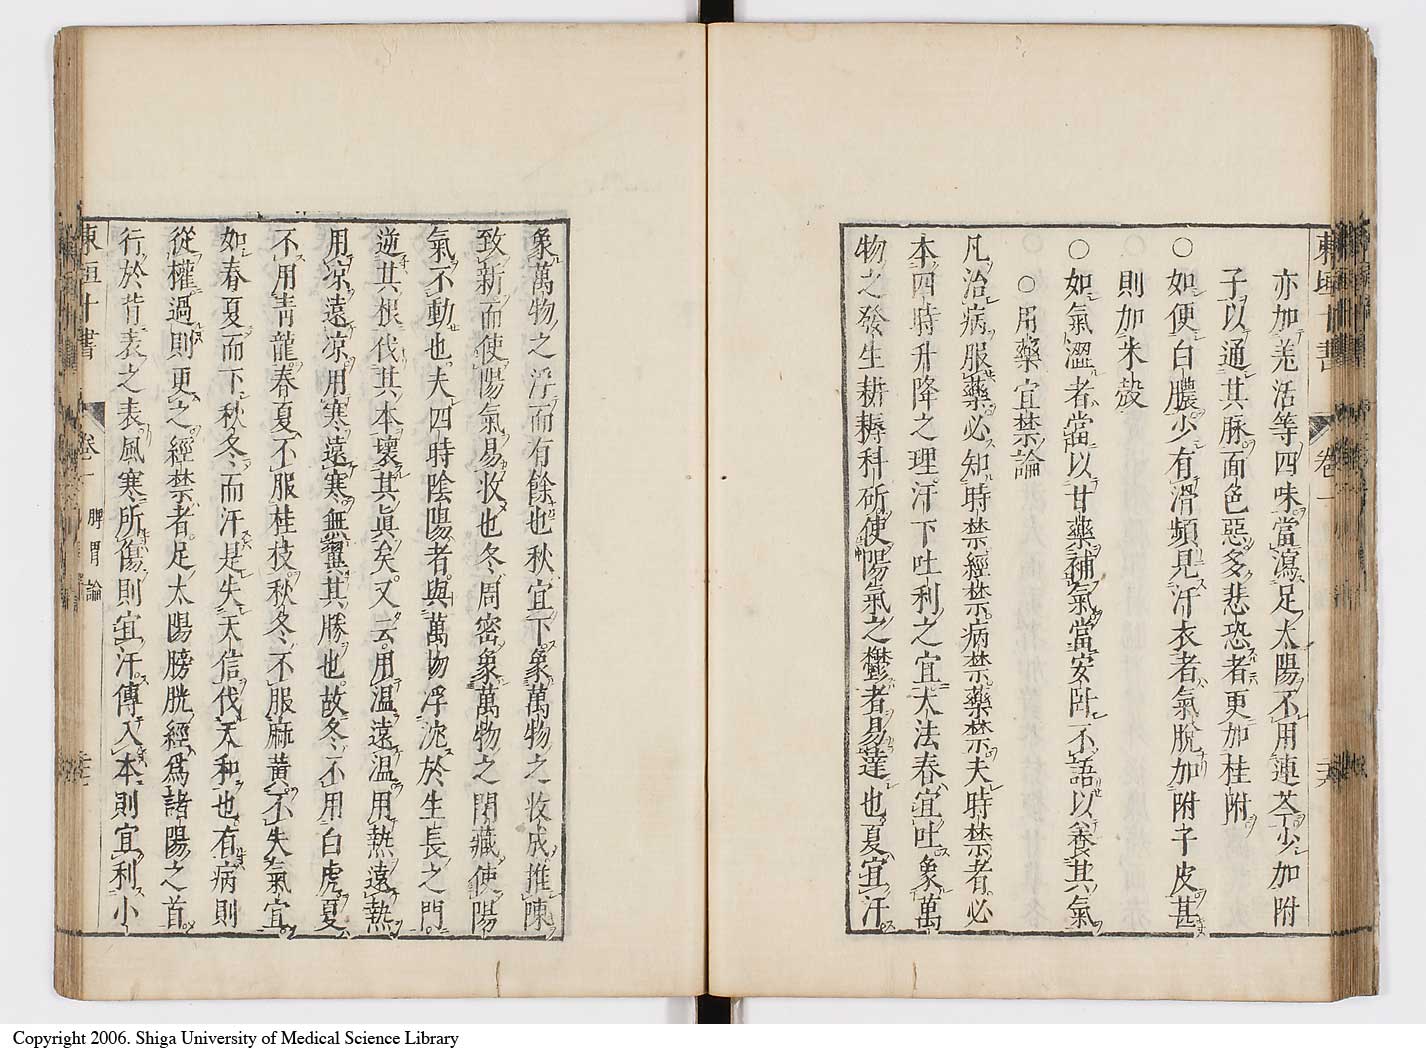 亦加羗活等四味當瀉足太陽不用連芩少加附
子以通其脉面色惡多悲恐者更加桂附
○如便白膿少有滑頻見汗衣者氣脫加附子皮甚
則加米殻
○如氣澀者當以甘藥補氣當安卧不語以養其氣
○用藥宜禁論
凡治病服藥必知時禁經禁病禁藥禁夫時禁者必
本四時升降之理汗下吐利之宜大法春宜吐象萬
物之發生耕耨科斫使陽氣之鬱者易達也夏宜汗
東垣十書 卷一
象萬物之浮而有餘也秋宜下象萬物之收成推陳
致新而使陽氣易收也冬周密象萬物之閉藏使陽
氣不動也夫四時陰陽者與萬物浮沈於生長之門
逆其根伐其本壞其眞矣又云用温遠温用熱遠熱
用凉遠凉用寒遠寒無翼其勝也故冬不用白虎夏
不用靑龍春夏不服桂枝秋冬不服麻黄不失氣宜
如春夏而下秋冬而汗是失天信伐天和也有病則
從權過則更之經禁者足太陽膀胱經爲諸陽之首
行於背表之表風寒所傷則宜汗傳入本則宜利小
東垣十書 卷一 脾胃論